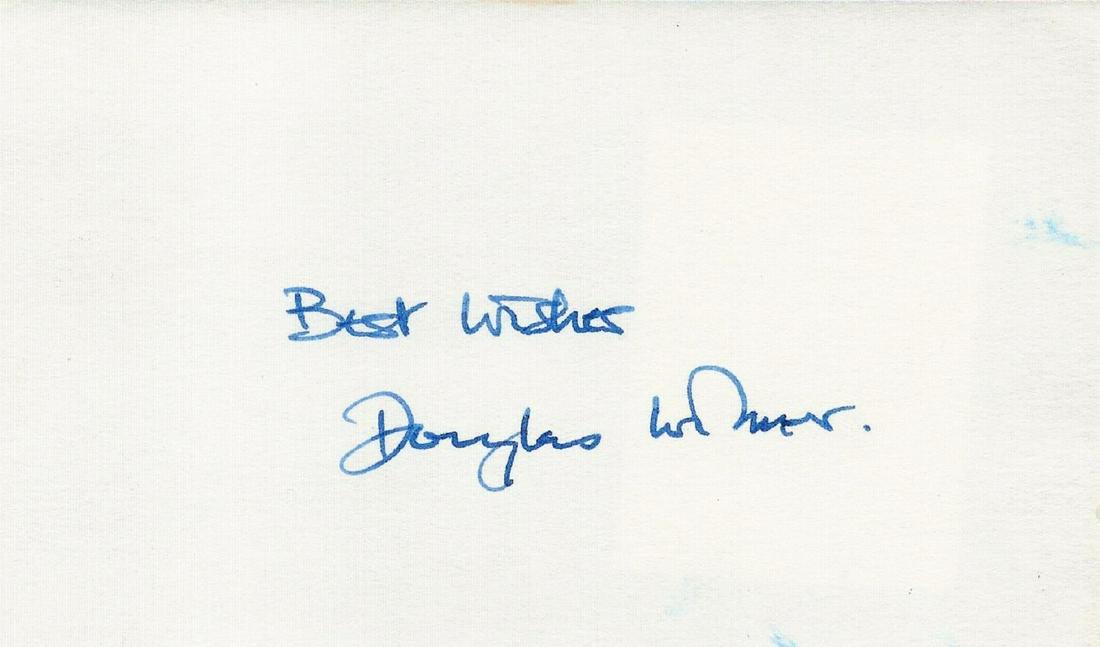 Best Wishes
Douglas Wilmer.